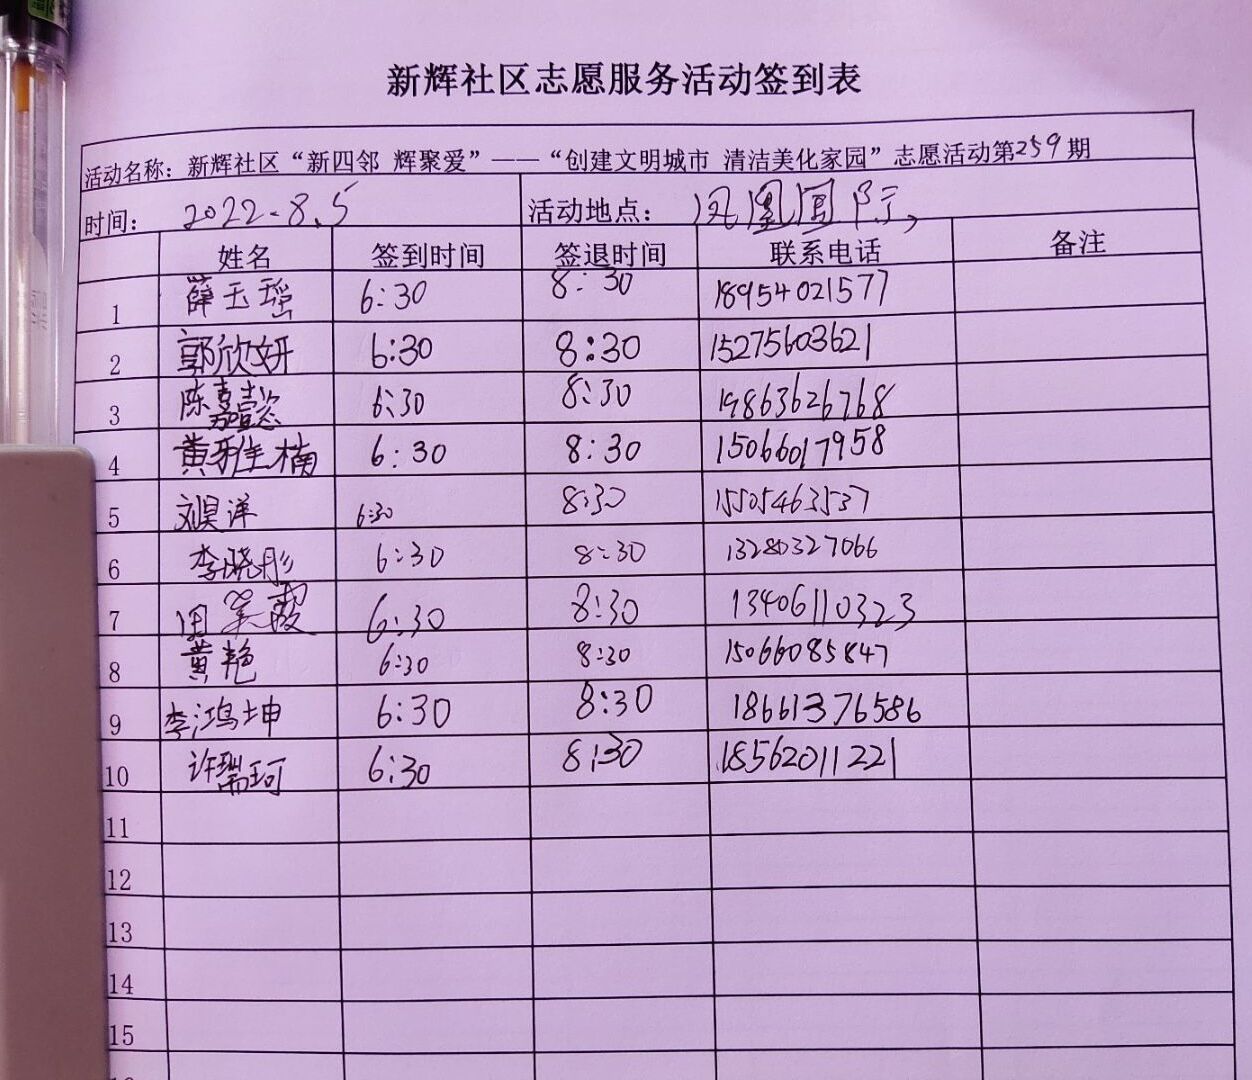 新辉社区志愿服务活动签到表
活动名称：新辉社区“新四邻 辉聚爱”——“创建文明城市 清洁美化家园”志愿活动第259期
时间： 2022.8.5 活动地点： 凤凰国际
姓名 签到时间 签退时间 联系电话 备注
1 薛玉瑶 6:30 8:30 18954021577
2 郭欣妍 6:30 8:30 15275603621
3 陈嘉懿 6:30 8:30 19863626768
4 黄雅楠 6:30 8:30 15066017958
5 刘昊洋 6:30 8:30 15505463537
6 李晓彤 6:30 8:30 13280327066
7 周美霞 6:30 8:30 13406110323
8 黄艳 6:30 8:30 15066085847
9 李鸿坤 6:30 8:30 18661376586
10 许瑞珂 6:30 8:30 18562011221
11
12
13
14
15